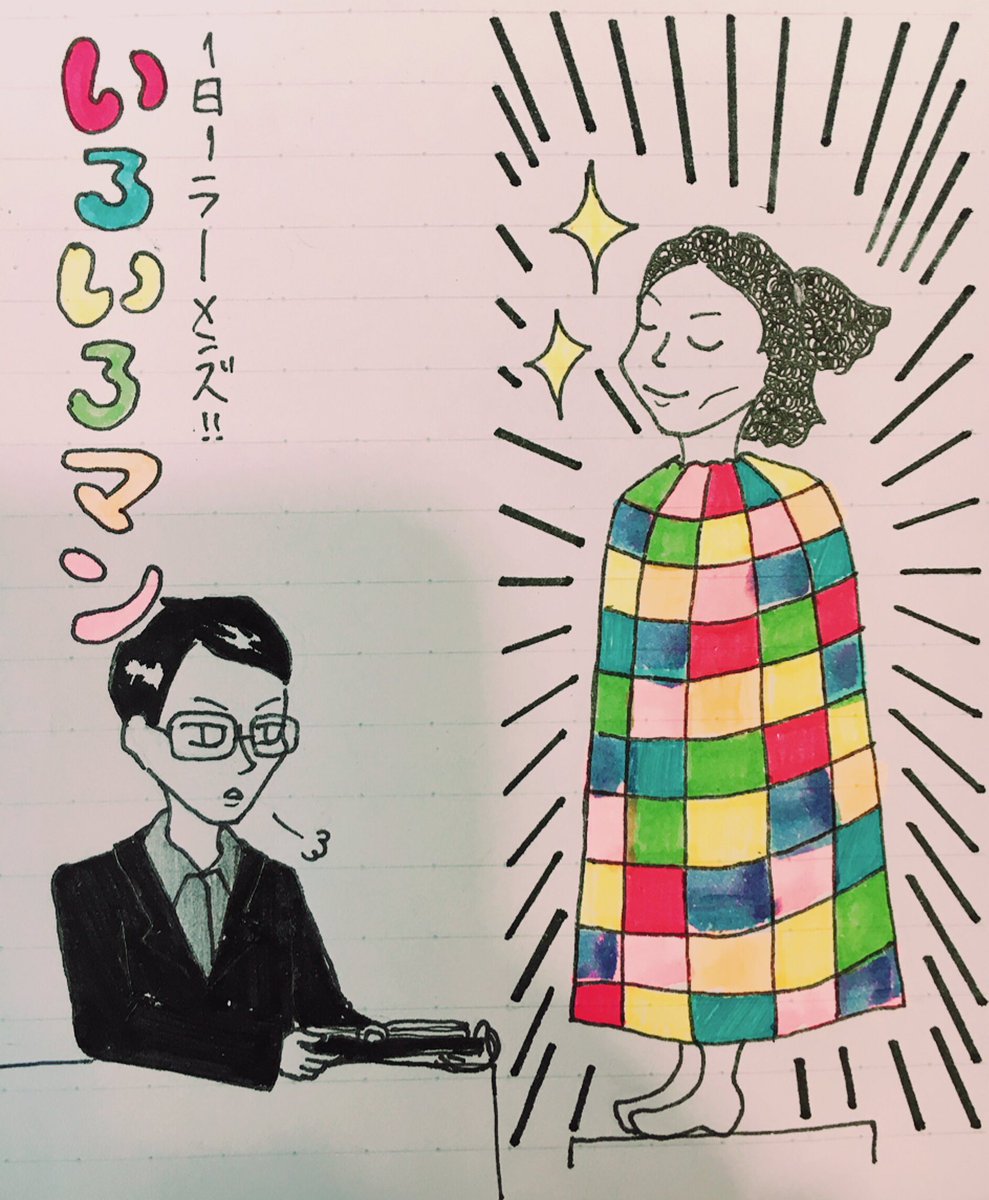 1日1ラーメンズ!!
いろいろマン